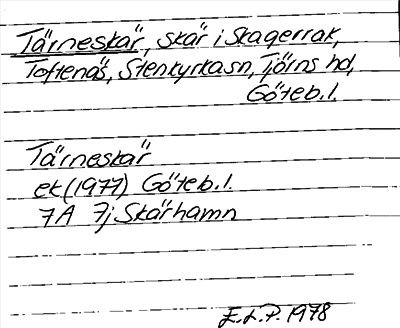 Tärneskär, skär i Skagerrak,
Toftenäs, Stenkyrkasn, Tjörns hd,
Göteb.l.
Tärneskär
ek (1977) Göteb.l.
7A 7j Skärhamn
E.L.P. 1978